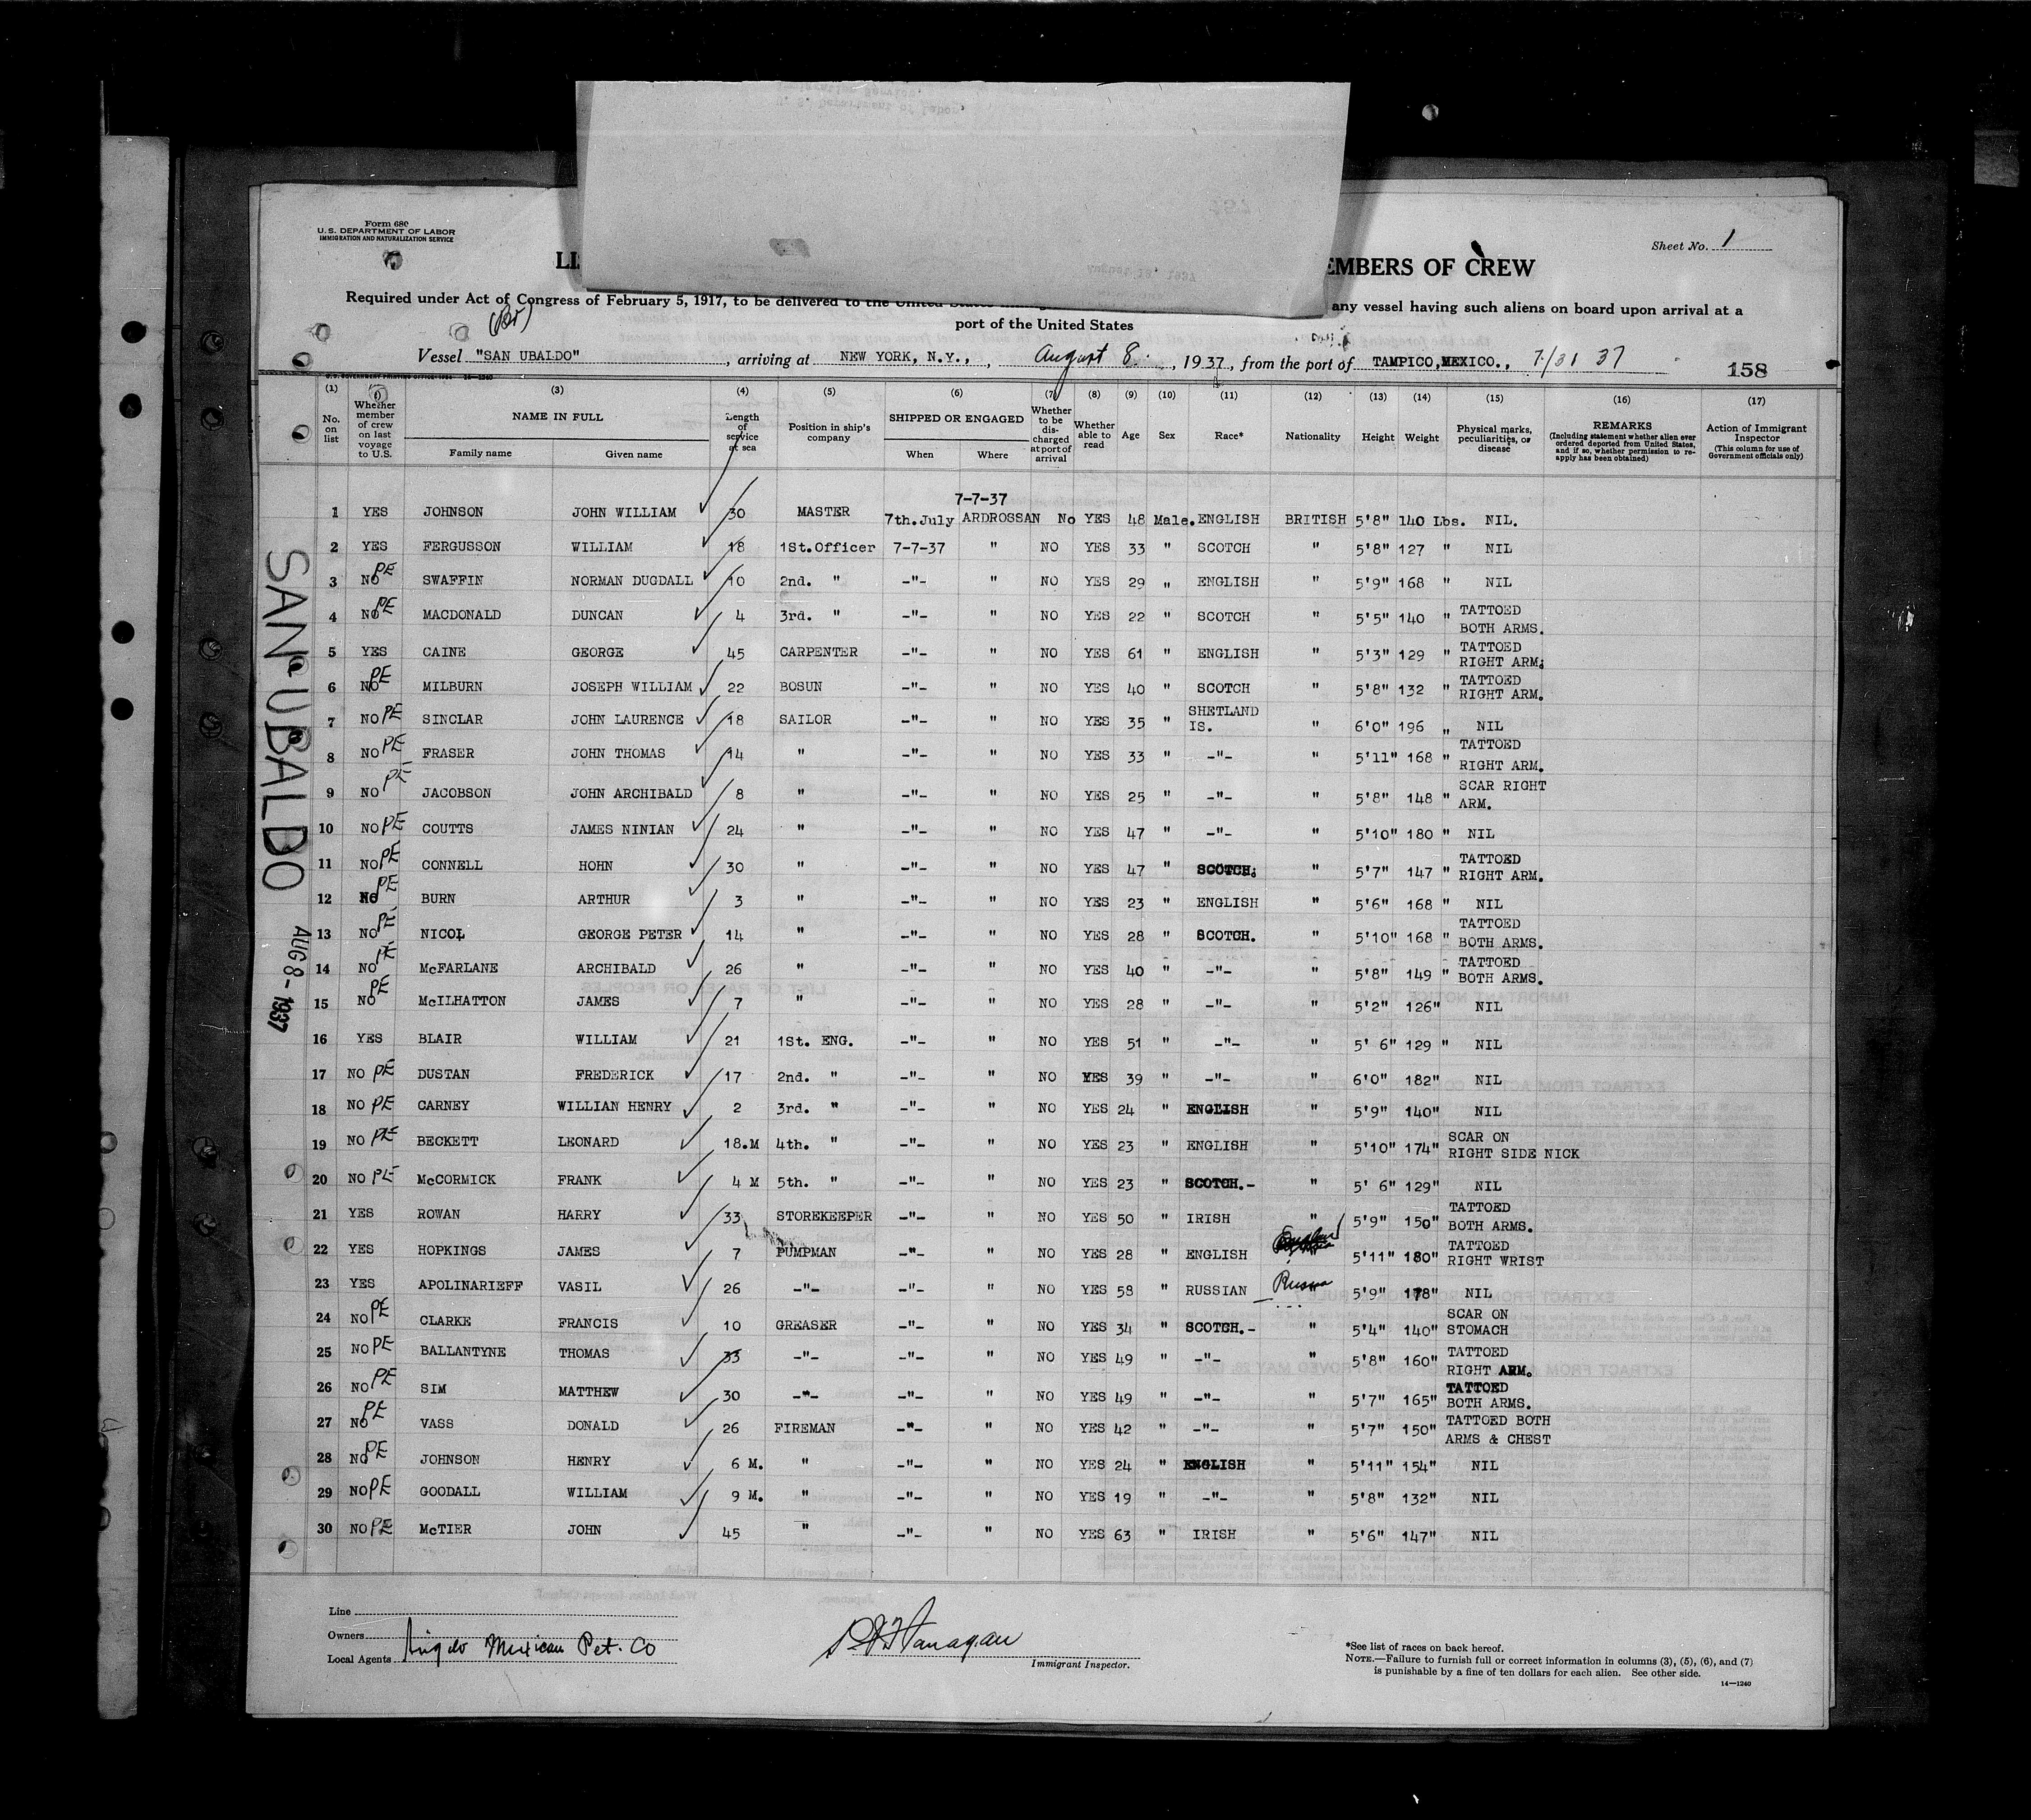 Form 680
U. S. DEPARTMENT OF LABOR
IMMIGRATION AND NATURALIZATION SERVICE
Sheet No. 1
EMBERS OF CREW
Required under Act of Congress of February 5, 1917, to be delivered to the United States any vessel having such aliens on board upon arrival at a
port of the United States
(Br)
Vessel "SAN UBALDO", arriving at NEW YORK, N.Y., August 8, 1937, from the port of TAMPICO,MEXICO., 7/31 37
158
(1) (3) (4) (5) (6) (7) (8) (9) (10) (11) (12) (13) (14) (15) (16) (17)
No. on list Whether member of crew on last voyage to U.S. NAME IN FULL Family name Given name Length of service at sea Position in ship's company SHIPPED OR ENGAGED When Where Whether to be discharged at port of arrival Whether able to read Age Sex Race* Nationality Height Weight Physical marks, peculiarities, or disease REMARKS (Including statement whether alien ever ordered deported from United States, and if so, whether permission to reapply has been obtained) Action of Immigrant Inspector (This column for use of Government officials only)
7-7-37
1 YES JOHNSON JOHN WILLIAM 30 MASTER 7th.July ARDROSSAN No YES 48 Male. ENGLISH BRITISH 5'8" 140 Lbs. NIL.
2 YES FERGUSSON WILLIAM 18 1St.Officer 7-7-37 " NO YES 33 " SCOTCH " 5'8" 127 " NIL
3 NO PE SWAFFIN NORMAN DUGDALL 10 2nd. " -"- " NO YES 29 " ENGLISH " 5'9" 168 " NIL
4 NO PE MACDONALD DUNCAN 4 3rd. " -"- " NO YES 22 " SCOTCH " 5'5" 140 " TATTOED BOTH ARMS.
5 YES CAINE GEORGE 45 CARPENTER -"- " NO YES 61 " ENGLISH " 5'3" 129 " TATTOED RIGHT ARM;
6 NO PE MILBURN JOSEPH WILLIAM 22 BOSUN -"- " NO YES 40 " SCOTCH " 5'8" 132 " TATTOED RIGHT ARM.
7 NO PE SINCLAR JOHN LAURENCE 18 SAILOR -"- " NO YES 35 " SHETLAND IS. " 6'0" 196 " NIL
8 NO PE FRASER JOHN THOMAS 14 " -"- " NO YES 33 " -"- " 5'11" 168 " TATTOED RIGHT ARM.
9 NO PE JACOBSON JOHN ARCHIBALD 8 " -"- " NO YES 25 " -"- " 5'8" 148 " SCAR RIGHT ARM.
10 NO PE COUTTS JAMES NINIAN 24 " -"- " NO YES 47 " -"- " 5'10" 180 " NIL
11 NO PE CONNELL HOHN 30 " -"- " NO YES 47 " SCOTCH. " 5'7" 147 " TATTOED RIGHT ARM.
12 NO PE BURN ARTHUR 3 " -"- " NO YES 23 " ENGLISH " 5'6" 168 " NIL
13 NO PE NICOL GEORGE PETER 14 " -"- " NO YES 28 " SCOTCH. " 5'10" 168 " TATTOED BOTH ARMS.
14 NO PE McFARLANE ARCHIBALD 26 " -"- " NO YES 40 " -"- " 5'8" 149 " TATTOED BOTH ARMS.
15 NO PE McILHATTON JAMES 7 " -"- " NO YES 28 " -"- " 5'2" 126" NIL
16 YES BLAIR WILLIAM 21 1St. ENG. -"- " NO YES 51 " -"- " 5' 6" 129 " NIL
17 NO PE DUSTAN FREDERICK 17 2nd. " -"- " NO YES 39 " -"- " 6'0" 182" NIL
18 NO PE CARNEY WILLIAN HENRY 2 3rd. " -"- " NO YES 24 " ENGLISH " 5'9" 140" NIL
19 NO PE BECKETT LEONARD 18.M 4th. " -"- " NO YES 23 " ENGLISH " 5'10" 174" SCAR ON RIGHT SIDE NICK
20 NO PE McCORMICK FRANK 4 M 5th. " -"- " NO YES 23 " SCOTCH.- " 5' 6" 129" NIL
21 YES ROWAN HARRY 33 STOREKEEPER -"- " NO YES 50 " IRISH " 5'9" 150" TATTOED BOTH ARMS.
22 YES HOPKINGS JAMES 7 PUMPMAN -"- " NO YES 28 " ENGLISH 5'11" 180" TATTOED RIGHT WRIST
23 YES APOLINARIEFF VASIL 26 -"- -"- " NO YES 58 " RUSSIAN Russia 5'9" 178" NIL
24 NO PE CLARKE FRANCIS 10 GREASER -"- " NO YES 34 " SCOTCH.- " 5'4" 140" SCAR ON STOMACH
25 NO PE BALLANTYNE THOMAS 33 -"- -"- " NO YES 49 " -"- " 5'8" 160" TATTOED RIGHT ARM.
26 NO PE SIM MATTHEW 30 -"- -"- " NO YES 49 " -"- " 5'7" 165" TATTOED BOTH ARMS.
27 NO PE VASS DONALD 26 FIREMAN -"- " NO YES 42 " -"- " 5'7" 150" TATTOED BOTH ARMS & CHEST
28 NO PE JOHNSON HENRY 6 M. " -"- " NO YES 24 " ENGLISH " 5'11" 154" NIL
29 NO PE GOODALL WILLIAM 9 M. " -"- " NO YES 19 " -"- " 5'8" 132" NIL
30 NO PE McTIER JOHN 45 " -"- " NO YES 63 " IRISH " 5'6" 147" NIL
SAN UBALDO
AUG 8 - 1937
Line
Owners
Local Agents Anglo Mexican Pet. Co
Immigrant Inspector.
*See list of races on back hereof.
NOTE.—Failure to furnish full or correct information in columns (3), (5), (6), and (7)
is punishable by a fine of ten dollars for each alien. See other side.
14—1240